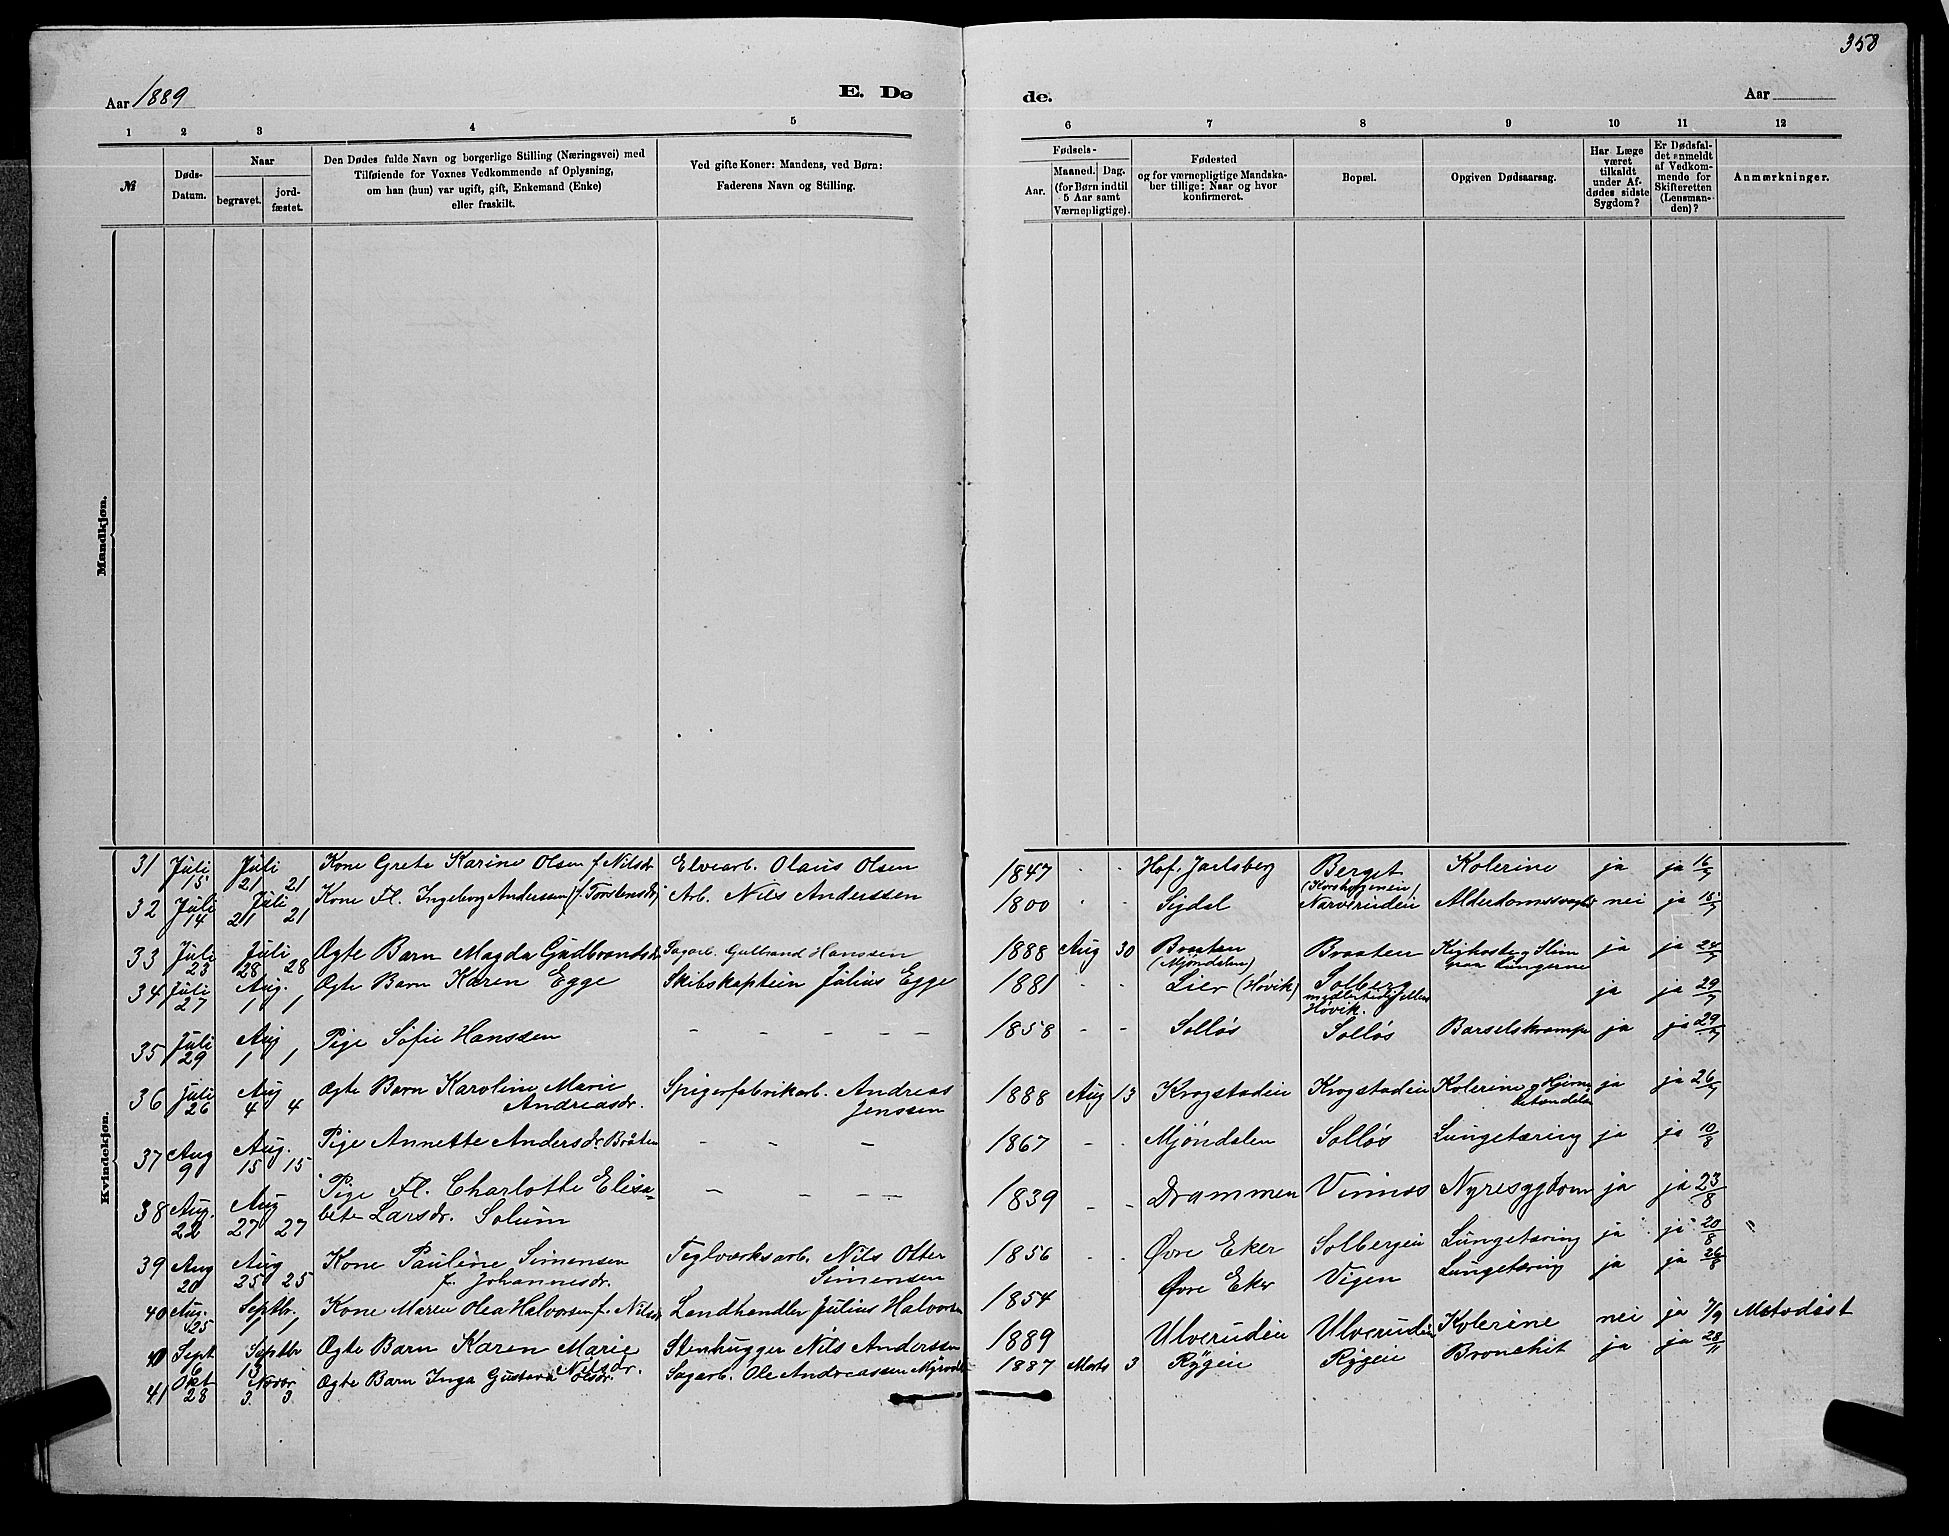 358
Aar 1889
E. Dø
de.
Aar
1 2 3 4 5 6 7 8 9 10 11 12
№
Døds-
Datum.
Naar
begravet.
jord-
fæstet.
Den Dødes fulde Navn og borgerlige Stilling (Næringsvei) med
Tilføiende for Voxnes Vedkommende af Oplysning,
om han (hun) var ugift, gift, Enkemand (Enke)
eller fraskilt.
Ved gifte Koner: Mandens, ved Børn:
Faderens Navn og Stilling.
Fødsels-
Aar.
Maaned. Dag.
(for Børn indtil
5 Aar samt
Værnepligtige).
Fødested
og for værnepligtige Mandska-
ber tillige: Naar og hvor
konfirmeret.
Bopæl.
Opgiven Dødsaarsag.
Har Læge
været
tilkaldt
under Af-
dødes sidste
Sygdom?
Er Dødsfal-
det anmeldt
af Vedkom-
mende for
Skifteretten
(Lensman-
den)?
Anmærkninger.
Mandkjøn.
Kvindekjøn.
31 Juli 15 Juli 21 21 Kone Grete Karine Olsen f. Nilsdr Elvearb. Olaus Olsen 1847 - - Hof. Jarlsberg Berget Kolerine ja ja 16/7
(Korshageneie)
32 Juli 14 Juli 21 21 Kone Fl. Ingeborg Anderssen (f. Torstensdr) Arb. Nils Anderssen 1800 - - Sigdal Narverudeie nei ja 15/7
33 Juli 23 Juli 28 28 Ægte Barn Magda Gudbrandsdr Sagarb. Gulbrand Hanssen 1888 Aug 30 Braaten (Mjøndalen) Braaten Kighoste og Slim paa Lungerne ja ja 24/7
34 Juli 27 Aug. 1 1 Ægte Barn Karen Egge Skibskaptein Julius Egge 1881 - - Lier (Høvik) Solberg
Høvik. ja ja 29/7
35 Juli 29 Aug 1 1 Pige Sofie Hanssen - - - - - 1858 - - Solløs Solløs Barselskrampe ja ja 29/7
36 Juli 26 Aug 4 4 Ægte Barn Karoline Marie
Andreasdr. Spigerfabrikarb. Andreas
Jenssen 1888 Aug 13 Krogstadeie Krogstadeie Kolerine og Hjerne- ja ja 26/7
37 Aug 9 Aug. 15 15 Pige Annette Andersdr. Bråten - - - 1867 - - Mjøndalen Solløs Lungetæring ja ja 10/8
38 Aug. 22 Aug 27 27 Pige Fl. Charlotte Elisa-
bete Larsdr. Solum - - - - 1839 - - Drammen Vinnes Nyresygdom ja ja 23/8
39 Aug 20 Aug 25 25 Kone Pauline Simensen
f. Johannesdr. Teglværksarb. Nils Otter
Simensen 1856 - - Øvre Eker Solbergeie Lungetæring ja ja 20/8 "
40 Aug. 25 Septbr. 1 1 Kone Maren Olea Halvorsen f. Nilsdr Landhandler Julius Halvorsen 1854 Øvre Eker Vigen Lungetæring ja ja 26/8
40 Sept 6 Septbr 13 Ægte Barn Karen Marie
Nilsdr. Stenhugger Nils Anderssen 1889 Ulverudeie Ulverudeie Kolerine nei ja 7/9 Metodist
41 Okt 28 Novbr 3. 3 Ægte Barn Inga Gustava Olsdr. Sagarb. Ole Andreassen 1887 Marts 3 Rygeie Rygeie Bronchit ja ja 28/11